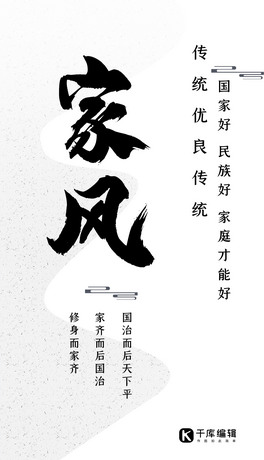 国家好 民族好 家庭才能好
传统优良传统
家风
国治而后天下平
家齐而后国治
修身而家齐
千库编辑